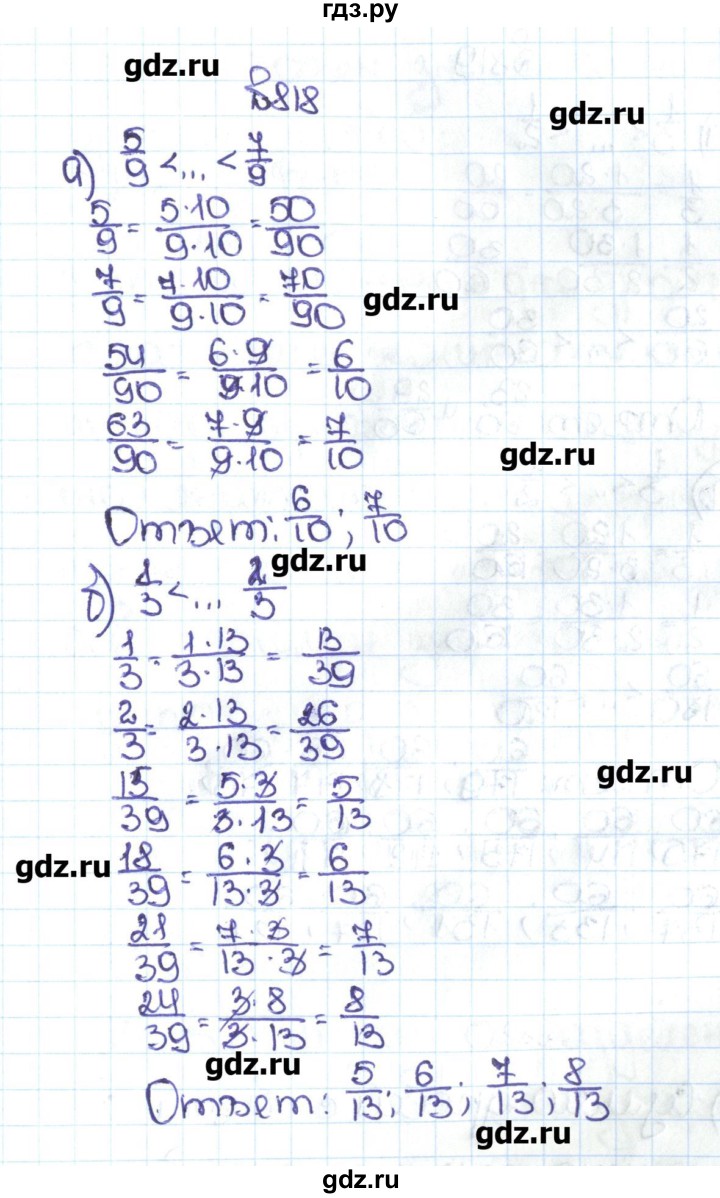 гдз.ру
gdz.ru
818
gdz.ru
а) 5/9 < ... < 7/9
5/9 = 5·10/9·10 = 50/90
7/9 = 7·10/9·10 = 70/90
gdz.ru
54/90 = 6·9/9·10 = 6/10
63/90 = 7·9/9·10 = 7/10
gdz.ru
Ответ: 6/10; 7/10
gdz.ru
б) 1/3 < ... 2/3
1/3 = 1·13/3·13 = 13/39
2/3 = 2·13/3·13 = 26/39
gdz.ru
15/39 = 5·3/3·13 = 5/13
gdz.ru
18/39 = 6·3/13·3 = 6/13
21/39 = 7·3/13·3 = 7/13
24/39 = 3·8/3·13 = 8/13
gdz.ru
Ответ: 5/13; 6/13; 7/13; 8/13
gdz.ru
gdz.ru